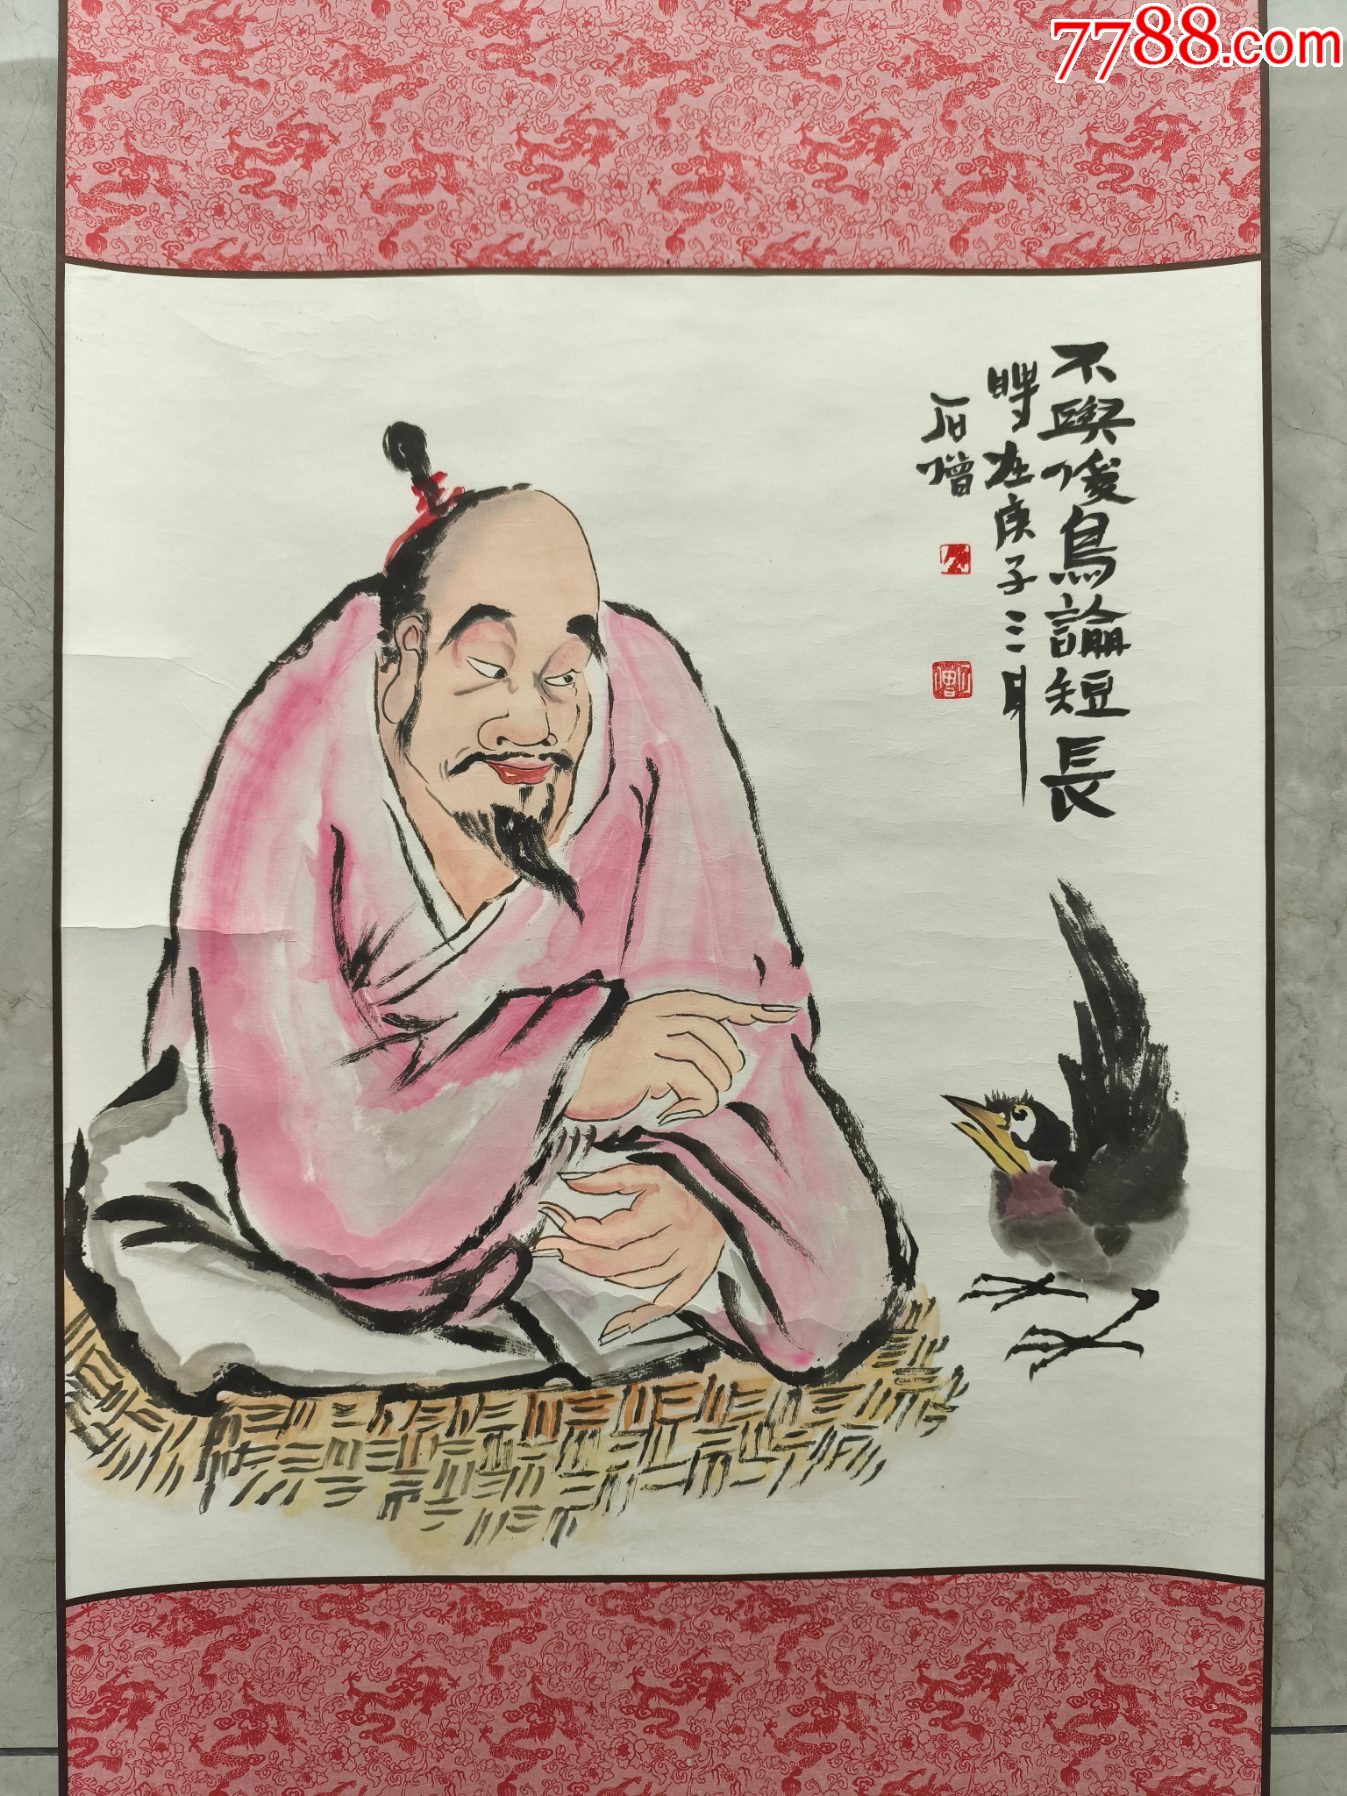 7788.com
不與傻鳥論短長
時在庚子三月
石僧